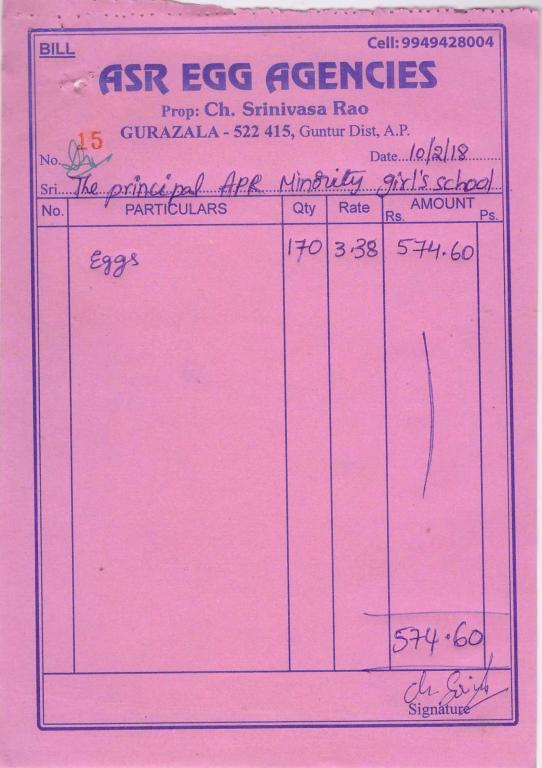 BILL
Cell: 9949428004
ASR EGG AGENCIES
Prop: Ch. Srinivasa Rao
GURAZALA - 522 415, Guntur Dist, A.P.
No. 15
Date 10/2/18
Sri The principal APR Minority girl's school
No. PARTICULARS Qty Rate AMOUNT
Rs. Ps.
Eggs 170 3.38 574.60
574.60
Signature